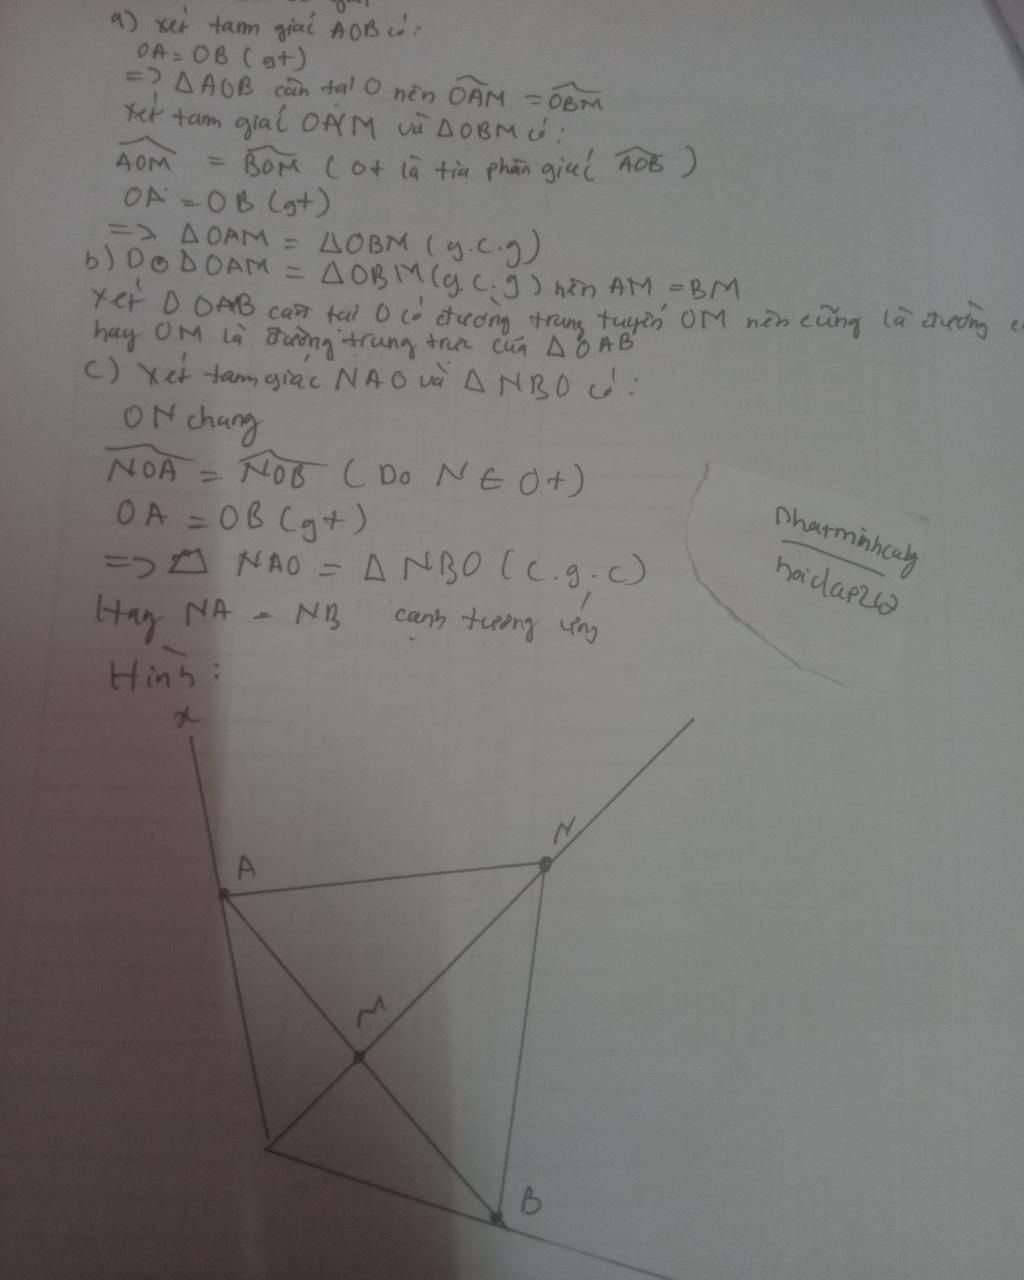 a) xét tam giác AOB có:
OA = OB (gt)
=> △AOB cân tại O nên OAM = OBM
xét tam giác OAM và △OBM có:
AOM = BOM ( Ot là tia phân giác AOB )
OA = OB (gt)
=> △OAM = △OBM (g.c.g)
b) Do △OAM = △OBM (g.c.g) nên AM = BM
xét △OAB cân tại O có đường trung tuyến OM nên cũng là đường
hay OM là đường trung trực của △OAB
c) xét tam giác NAO và △NBO có:
ON chung
NOA = NOB ( Do N ∈ Ot)
OA = OB (gt)
=> △ NAO = △ NBO (c.g.c)
Hay NA = NB cạnh tương ứng
Nhatminhcubg
hoidap2
Hình:
x
N
A
M
B